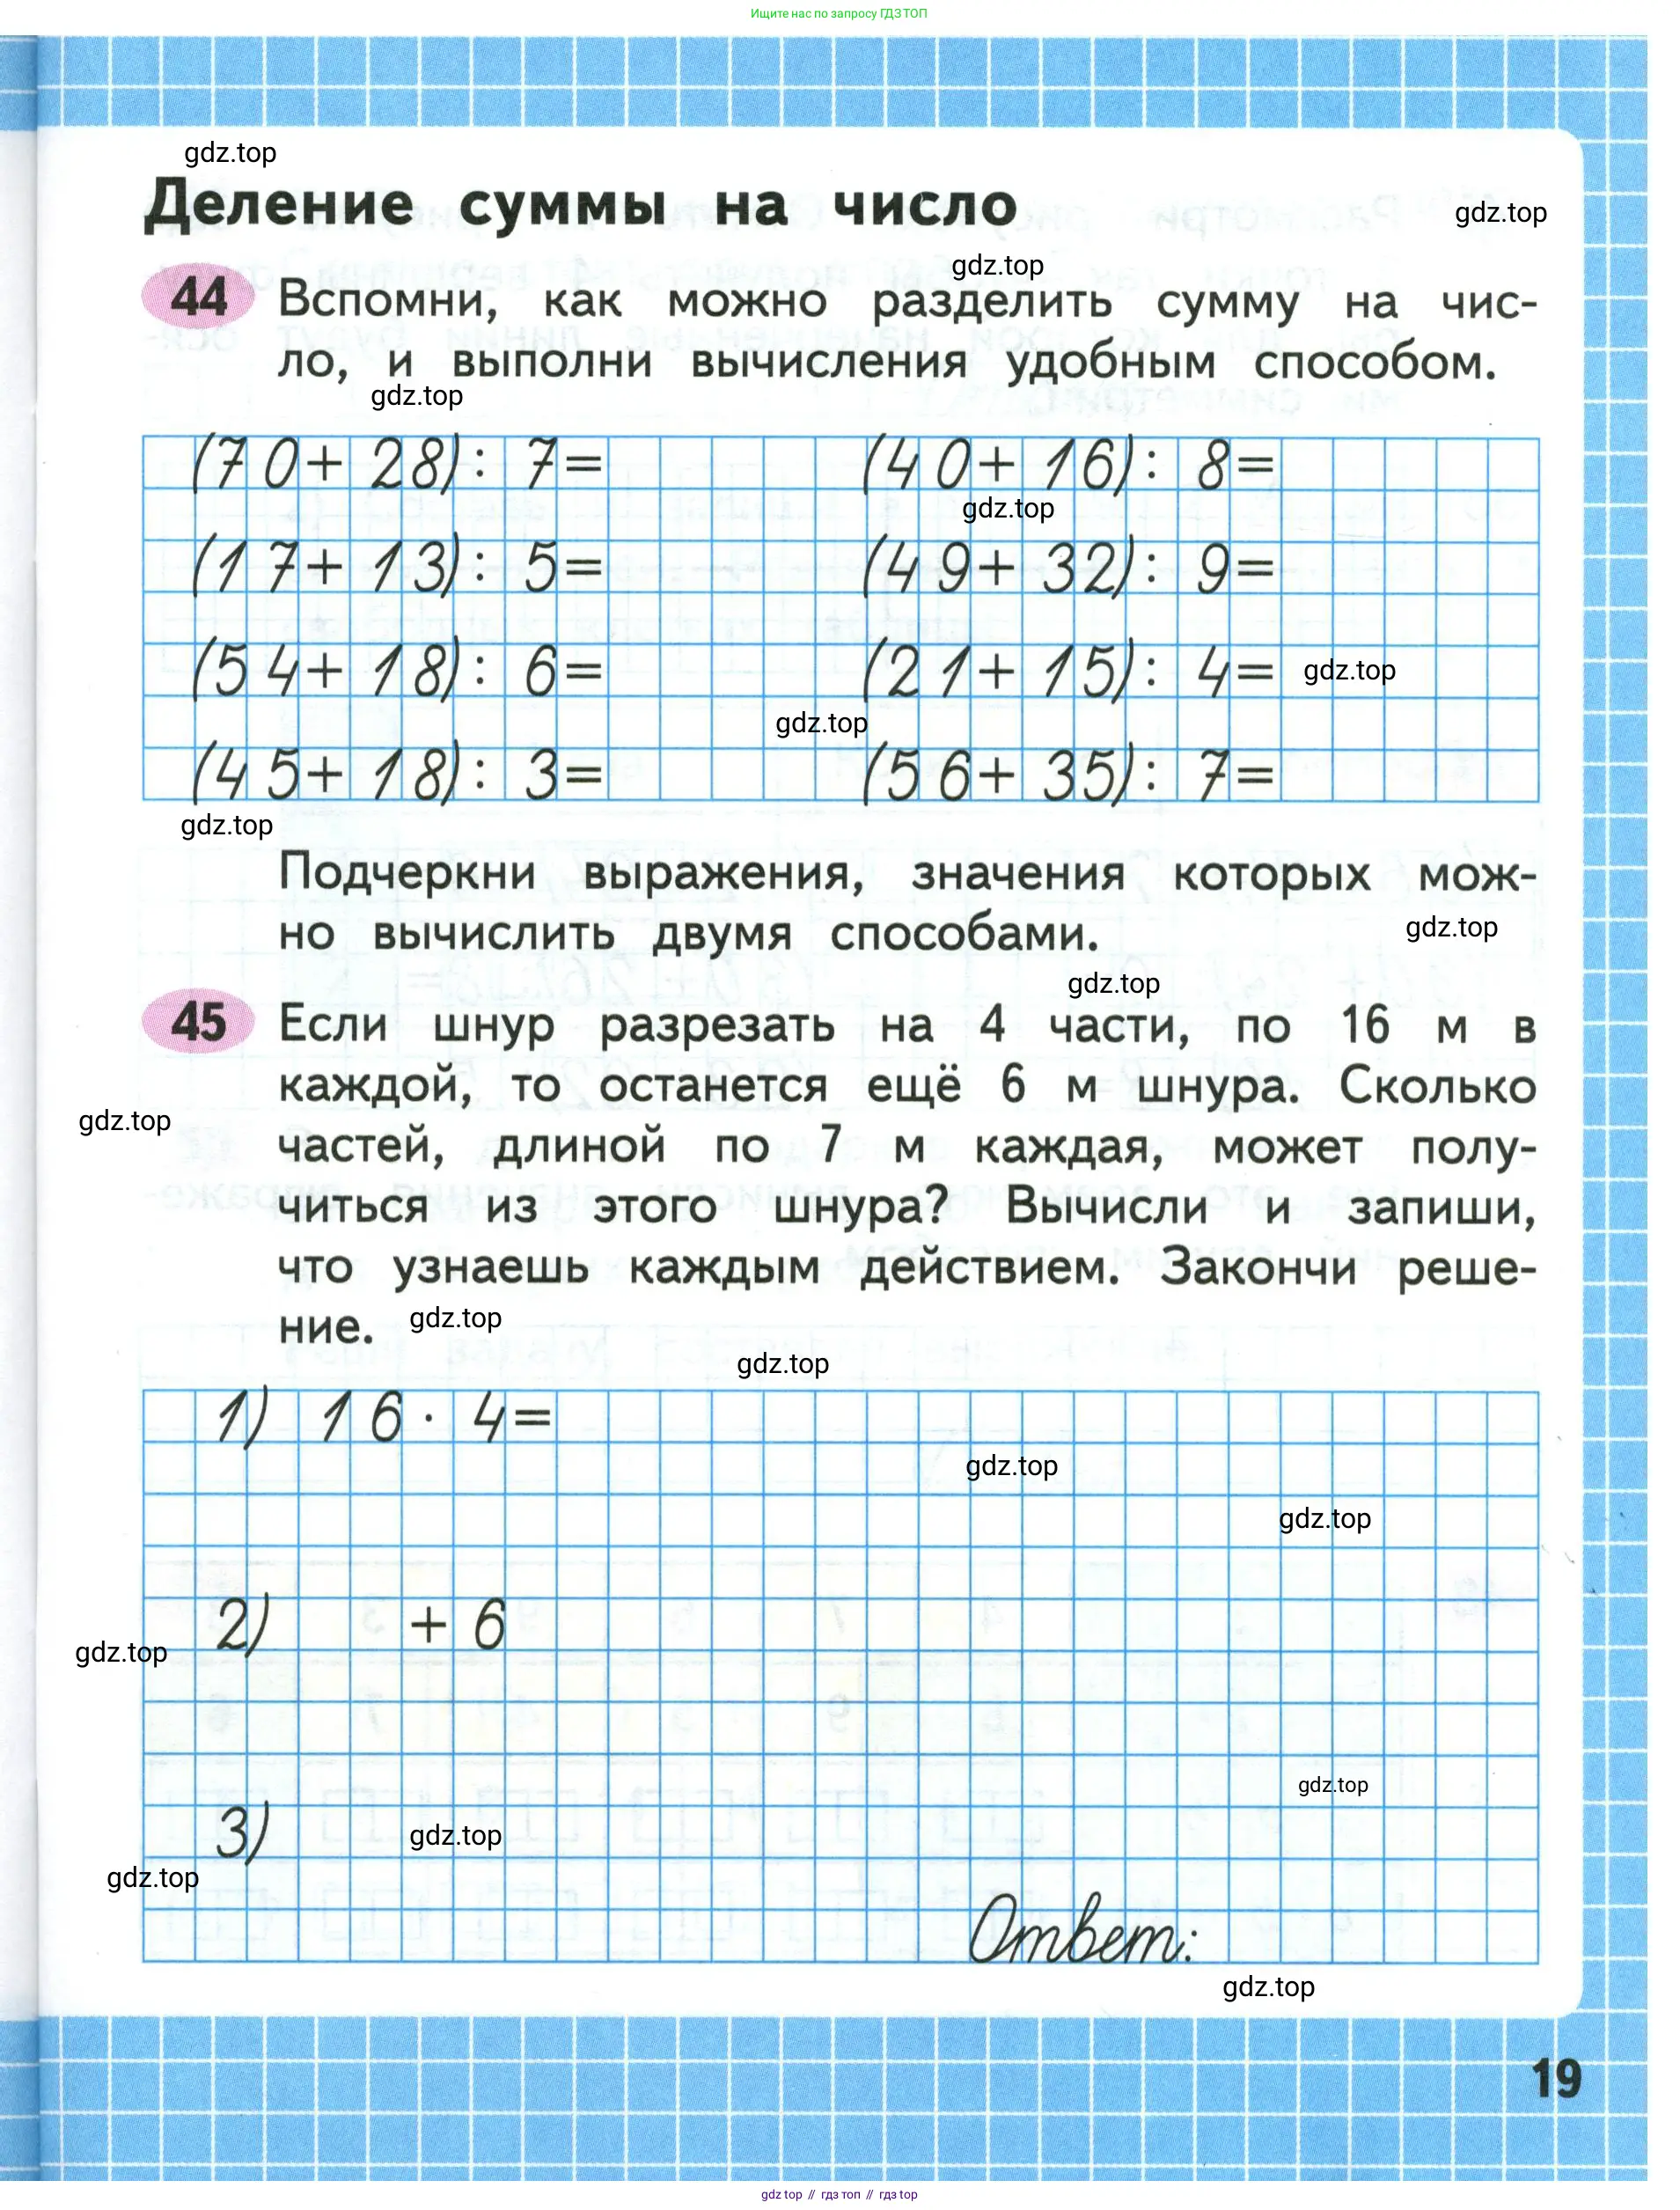 Ищите нас по запросу ГДЗ ТОП
gdz.top
Деление суммы на число
gdz.top
gdz.top
44 Вспомни, как можно разделить сумму на чис-
ло, и выполни вычисления удобным способом.
gdz.top
(70+ 28): 7= (40+ 16): 8=
gdz.top
(17+ 13): 5= (49+ 32): 9=
(54+ 18): 6= (21+ 15): 4= gdz.top
gdz.top
(45+ 18): 3= (56+ 35): 7=
gdz.top
Подчеркни выражения, значения которых мож-
но вычислить двумя способами.
gdz.top
gdz.top
45 Если шнур разрезать на 4 части, по 16 м в
каждой, то останется ещё 6 м шнура. Сколько
gdz.top
частей, длиной по 7 м каждая, может полу-
читься из этого шнура? Вычисли и запиши,
что узнаешь каждым действием. Закончи реше-
ние. gdz.top
gdz.top
1) 16 · 4=
gdz.top
gdz.top
2) + 6
gdz.top
gdz.top
3) gdz.top
gdz.top
Ответ:
gdz.top
19
gdz top // гдз топ // гдз top